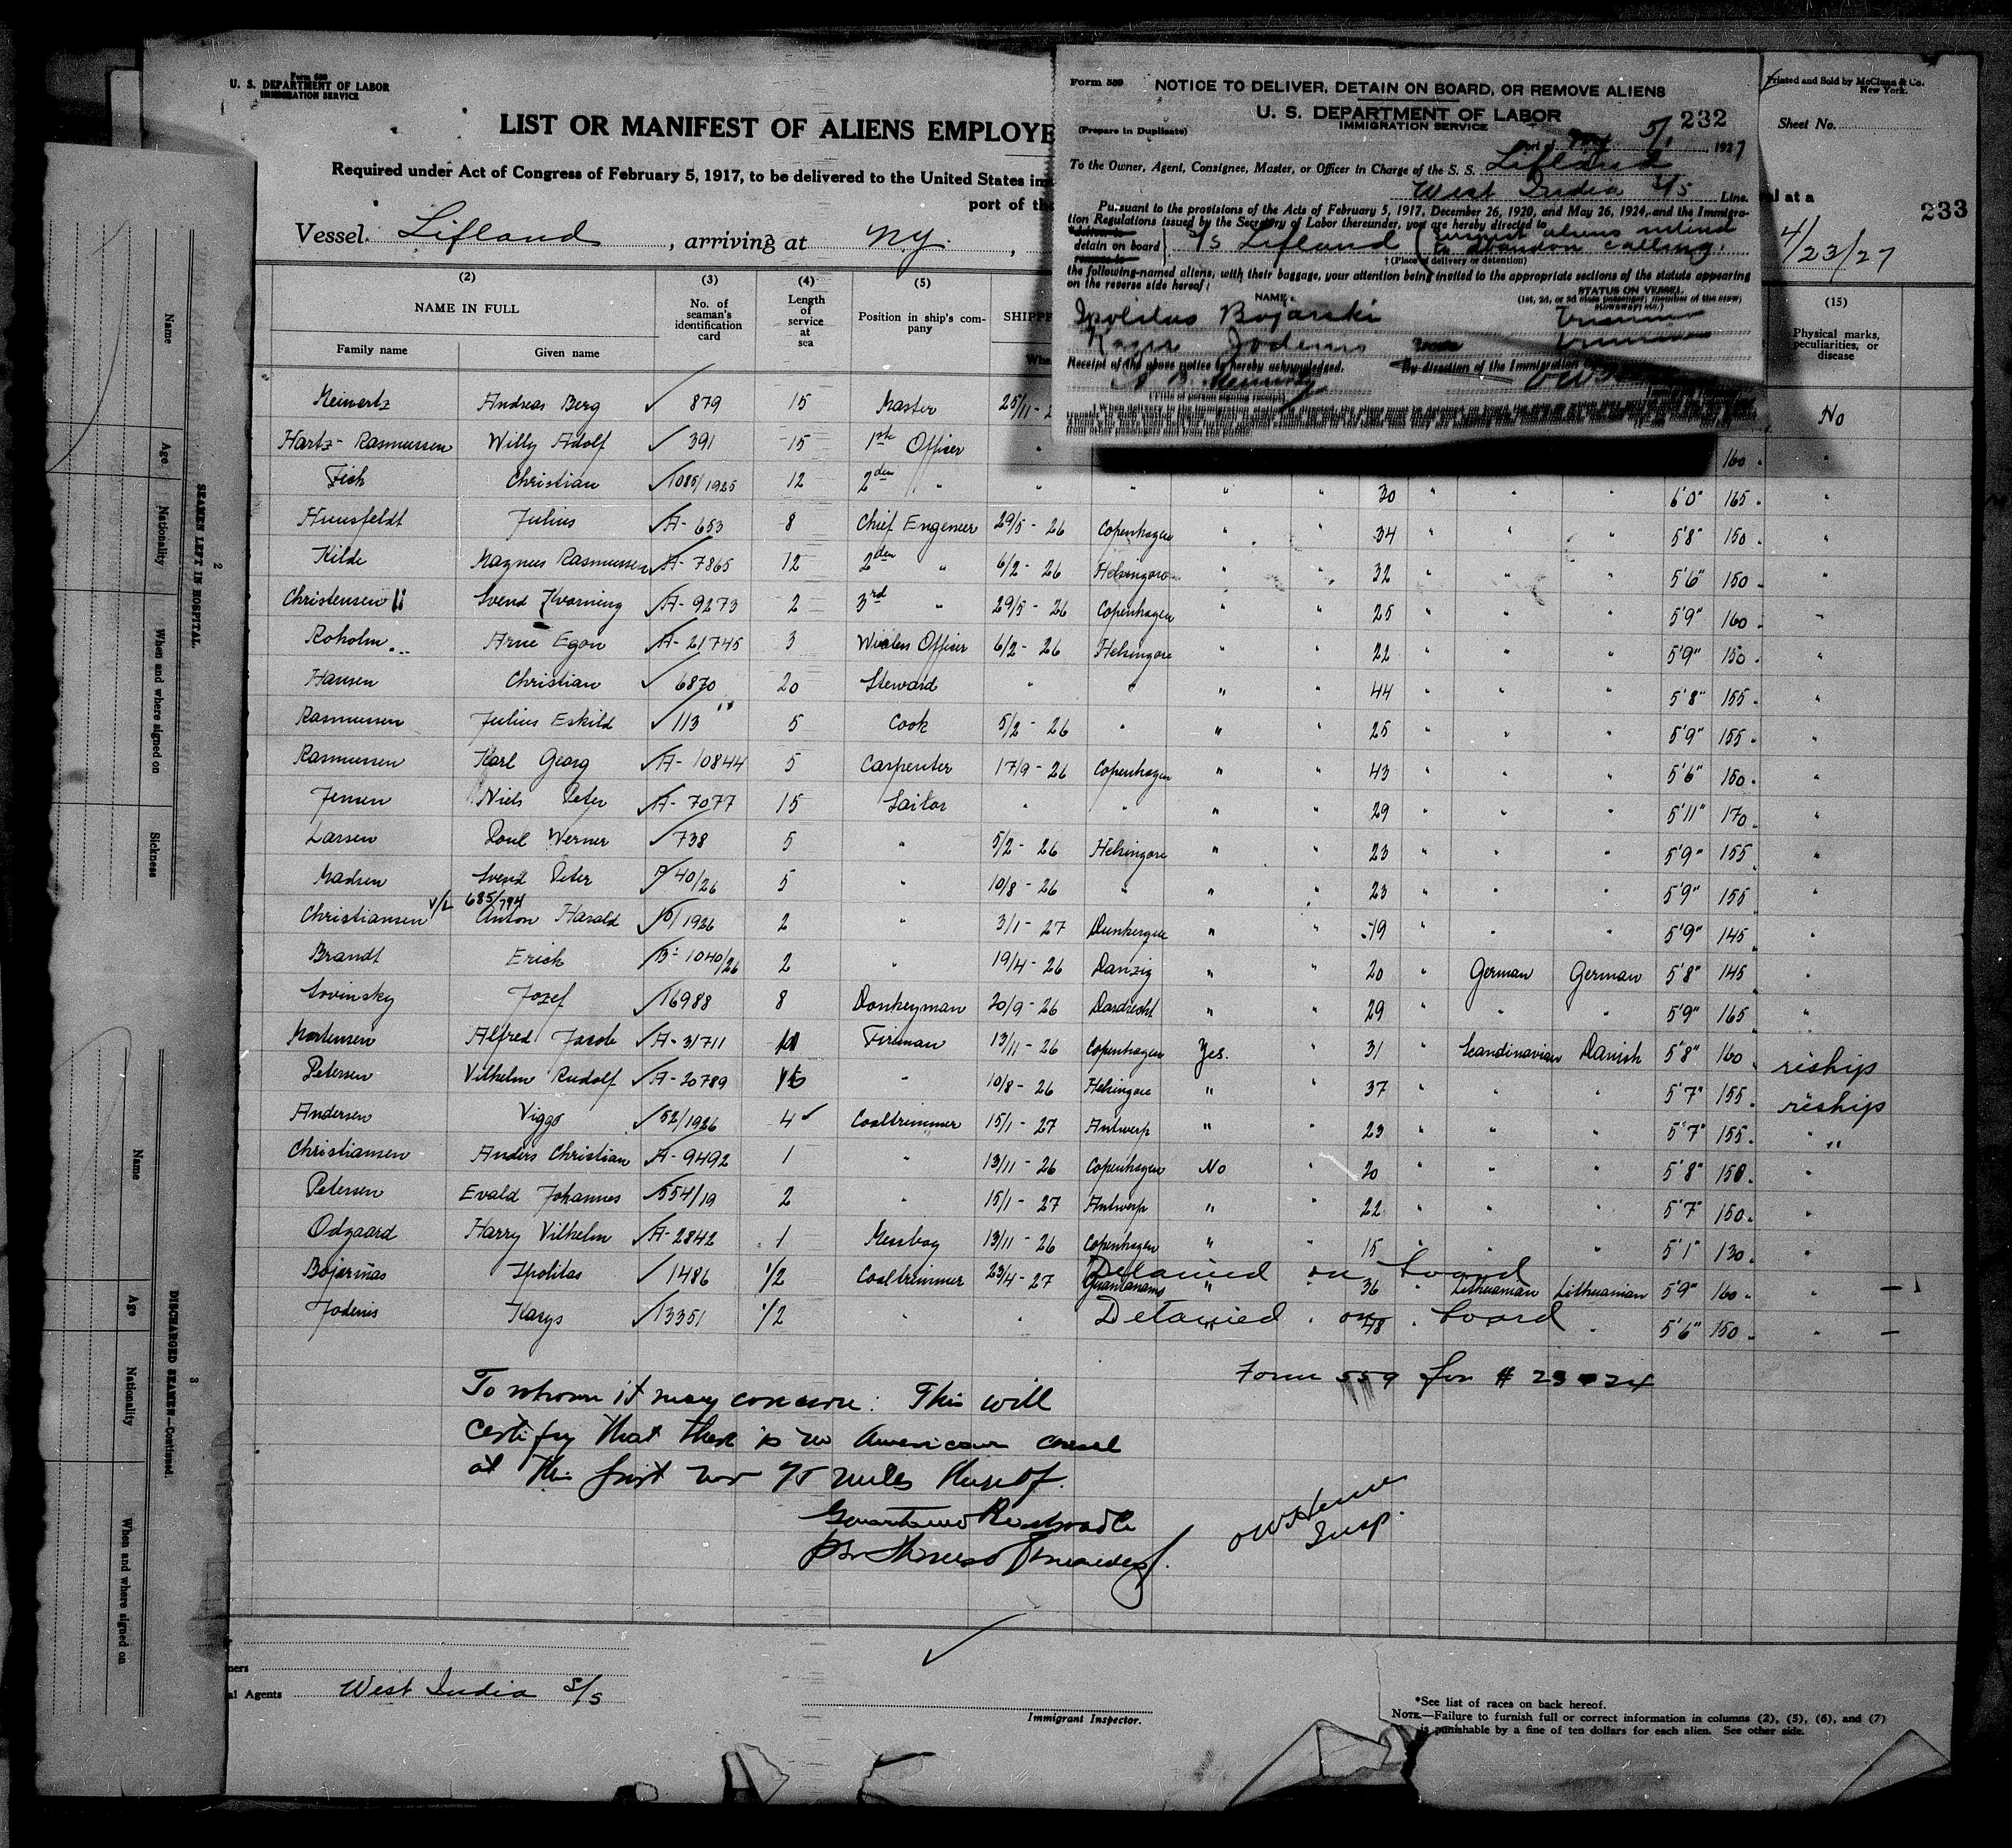 Form 680
U. S. DEPARTMENT OF LABOR
IMMIGRATION SERVICE
LIST OR MANIFEST OF ALIENS EMPLOYE
Required under Act of Congress of February 5, 1917, to be delivered to the United States im
port of the
Vessel Lifland, arriving at NY.,
Form 559
NOTICE TO DELIVER, DETAIN ON BOARD, OR REMOVE ALIENS
U. S. DEPARTMENT OF LABOR
232
(Prepare in Duplicate)
IMMIGRATION SERVICE
Port of NY 5/1, 1927
To the Owner, Agent, Consignee, Master, or Officer in Charge of the S. S. Lifland
West India S/S Line.
Pursuant to the provisions of the Acts of February 5, 1917, December 26, 1920, and May 26, 1924, and the Immigra-
tion Regulations issued by the Secretary of Labor thereunder, you are hereby directed to
detain on board S/S Lifland aliens intend
to abandon calling.
† (Place of delivery or detention)
the following-named aliens, with their baggage, your attention being invited to the appropriate sections of the statute appearing
on the reverse side hereof:
NAME. STATUS ON VESSEL.
(1st, 2d, or 3d class passenger, member of the crew, stowaway, etc.)
Ipolitas Bojarski Trimmer
Jodenis Trimmer
Receipt of the above notice is hereby acknowledged. By direction of the Immigration
(Title of person signing receipt)
Printed and Sold by McClunn & Co.
New York.
Sheet No.
al at a
233
4/23/27
(2) (3) (4) (5) (15)
NAME IN FULL
Family name Given name
No. of seaman's identification card
Length of service at sea
Position in ship's com-pany
SHIPPE
Whe
Physical marks, peculiarities, or disease
Meinertz Andreas Berg 879 15 Master 25/11-2 No
Hartz-Rasmussen Willy Adolf 391 15 1st Officer " 160 "
Fick Christian 1085/1925 12 2den " " " " " 30 " " " 6'0" 165 "
Huusfeldt Julius A-653 8 Chief Engeneer 29/5-26 Copenhagen " " 34 " " " 5'8" 150 "
Kilde Magnus Rasmussen A-7865 12 2den " 6/2-26 Helsingore " " 32 " " " 5'6" 150 "
Christensen Svend Kvorning A-9273 2 3rd " 29/5-26 Copenhagen " " 25 " " " 5'9" 160 "
Roholm Arne Egon A-21745 3 Wireless Officer 6/2-26 Helsingore " " 22 " " " 5'9" 150 "
Hansen Christian 6870 20 Steward " " " " 44 " " " 5'8" 155 "
Rasmussen Julius Eskild 113 5 Cook 5/2-26 " " " 25 " " " 5'9" 155 "
Rasmussen Karl Georg A-10844 5 Carpenter 17/9-26 Copenhagen " " 43 " " " 5'6" 150 "
Jensen Niels Peter A-7077 15 Sailor " " " " 29 " " " 5'11" 170 "
Larsen Poul Werner 738 5 " 5/2-26 Helsingore " " 23 " " " 5'9" 155 "
Madsen Svend Peter 40/26 5 " 10/8-26 " " " 23 " " " 5'9" 155 "
V/L 685/794
Christiansen Anton Harald 1926 2 " 3/1-27 Dunkerque " " 19 " " " 5'9" 145 "
Brandt Erich B-1040/26 2 " 19/4-26 Danzig " " 20 " German German 5'8" 145 "
Sovinsky Jozef 16988 8 Donkeyman 20/9-26 Dordrecht " " 29 " " " 5'9" 165 "
Mortensen Alfred Jacob A-31711 Fireman 13/11-26 Copenhagen Yes. " 31 " Scandinavian Danish 5'8" 160 reship
Petersen Vilhelm Rudolf A-20789 " 10/8-26 Helsingore " " 37 " " " 5'7" 155 reship
Andersen Viggo 52/1926 4 Coaltrimmer 15/1-27 Antwerp " " 23 " " " 5'7" 155 "
Christiansen Anders Christian A-9492 1 " 13/11-26 Copenhagen No " 20 " " " 5'8" 150 "
Petersen Evald Johannes 554/19 2 " 15/1-27 Antwerp " " 22 " " " 5'7" 150 "
Odgaard Harry Vilhelm A-2842 1 Messboy 13/11-26 Copenhagen " " 15 " " " 5'1" 130 "
Detained on board
Bojarinas Ipolitas 1486 1/2 Coaltrimmer 23/4-27 Guantanamo " 36 " Lithuanian Lithuanian 5'9" 160 " —
Jodenis Karys 13351 1/2 " " Detained on board " 48 " 5'6" 150 " —
Form 559 for # 23 - 24
To whom it may concern: This will
certify that there is no American consul
at this port nor 75 miles thereof.
Insp.
Owners
al Agents West India S/S
Immigrant Inspector.
*See list of races on back hereof.
NOTE.—Failure to furnish full or correct information in columns (2), (5), (6), and (7)
is punishable by a fine of ten dollars for each alien. See other side.
2
SEAMEN LEFT IN HOSPITAL.
Name Age Nationality When and where signed on Sickness
3
DISCHARGED SEAMEN—Continued
Name Age Nationality When and where signed on